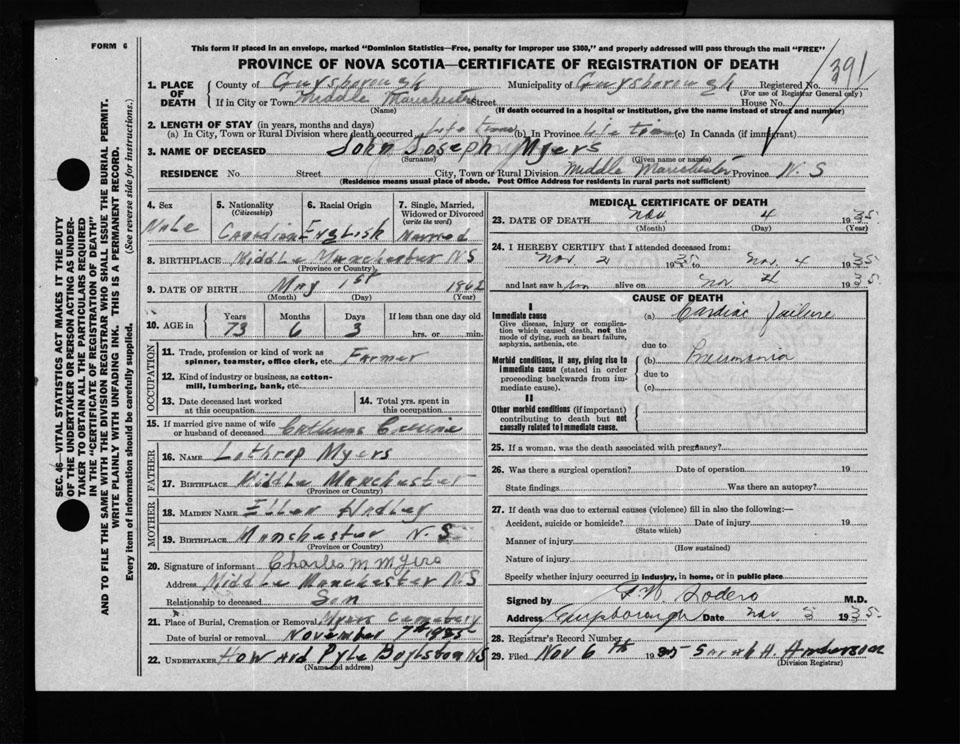 FORM 6
This form if placed in an envelope, marked "Dominion Statistics—Free, penalty for improper use $300," and properly addressed will pass through the mail "FREE"
PROVINCE OF NOVA SCOTIA—CERTIFICATE OF REGISTRATION OF DEATH
1391
1. PLACE OF DEATH County of Guysborough Municipality of Guysborough Registered No.
(For use of Registrar General only)
If in City or Town Middle Manchester Street House No.
(Name) (If death occurred in a hospital or institution, give the name instead of street and number)
2. LENGTH OF STAY (in years, months and days)
(a) In City, Town or Rural Division where death occurred Life time (b) In Province Life time (c) In Canada (if immigrant)
3. NAME OF DECEASED John Joseph Myers
(Surname) (Given name or names)
RESIDENCE No Street City, Town or Rural Division Middle Manchester Province N. S
(Residence means usual place of abode. Post Office Address for residents in rural parts not sufficient)
4. Sex 5. Nationality (Citizenship) 6. Racial Origin 7. Single, Married, Widowed or Divorced (write the word)
Male Canadian English Married
8. BIRTHPLACE Middle Manchester NS
(Province or Country)
9. DATE OF BIRTH May 1st 1862
(Month) (Day) (Year)
10. AGE in Years Months Days If less than one day old
73 6 3 hrs. or min.
OCCUPATION
11. Trade, profession or kind of work as spinner, teamster, office clerk, etc. Farmer
12. Kind of industry or business, as cotton-mill, lumbering, bank, etc.
13. Date deceased last worked at this occupation 14. Total yrs. spent in this occupation
15. If married give name of wife or husband of deceased
FATHER
16. NAME Lothrop Myers
17. BIRTHPLACE Middle Manchester
(Province or Country)
MOTHER
18. MAIDEN NAME Ellen Hadley
19. BIRTHPLACE Manchester N. S
(Province or Country)
20. Signature of informant Charles M Myers
Address Middle Manchester NS
Relationship to deceased Son
21. Place of Burial, Cremation or Removal Myers Cemetery
Date of burial or removal November 7th 1935
22. UNDERTAKER Howard Pyle Boylston NS
(Name and address)
MEDICAL CERTIFICATE OF DEATH
23. DATE OF DEATH Nov 4 1935
(Month) (Day) (Year)
24. I HEREBY CERTIFY that I attended deceased from:
Nov. 2 1935 to Nov. 4 1935
and last saw him alive on Nov 4 1935
CAUSE OF DEATH
I
Immediate cause (a) Cardiac failure
Give disease, injury or complication which caused death, not the mode of dying, such as heart failure, asphyxia, asthenia, etc.
due to
Morbid conditions, if any, giving rise to immediate cause (stated in order proceeding backwards from immediate cause). (b) Pneumonia
due to
(c)
II
Other morbid conditions (if important) contributing to death but not causally related to immediate cause.
25. If a woman, was the death associated with pregnancy?
26. Was there a surgical operation? Date of operation 19
State findings Was there an autopsy?
27. If death was due to external causes (violence) fill in also the following:—
Accident, suicide or homicide? Date of injury 19
(State which)
Manner of injury
(How sustained)
Nature of injury
Specify whether injury occurred in industry, in home, or in public place
Signed by Sodero M.D.
Address Guysborough Date Nov. 1935
28. Registrar's Record Number
29. Filed Nov 6th 1935 Sarah H. Anderson
(Division Registrar)
SEC. 46—VITAL STATISTICS ACT MAKES IT THE DUTY
OF THE UNDERTAKER OR PERSON ACTING AS UNDER-
TAKER TO OBTAIN ALL THE PARTICULARS REQUIRED
IN THE "CERTIFICATE OF REGISTRATION OF DEATH"
AND TO FILE THE SAME WITH THE DIVISION REGISTRAR WHO SHALL ISSUE THE BURIAL PERMIT.
WRITE PLAINLY WITH UNFADING INK. THIS IS A PERMANENT RECORD.
Every item of information should be carefully supplied. (See reverse side for instructions.)